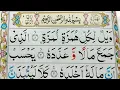 بِسْمِ اللهِ الرَّحْمٰنِ الرَّحِيْمِ
وَيْلٌ لِّكُلِّ هُمَزَةٍ لُّمَزَةٍ ۙ الَّذِيْ
جَمَعَ مَالًا وَّعَدَّدَهٗ ۙ يَحْسَبُ
اَنَّ مَالَهٗٓ اَخْلَدَهٗ ۚ كَلَّا لَيُنْۢبَذَنَّ